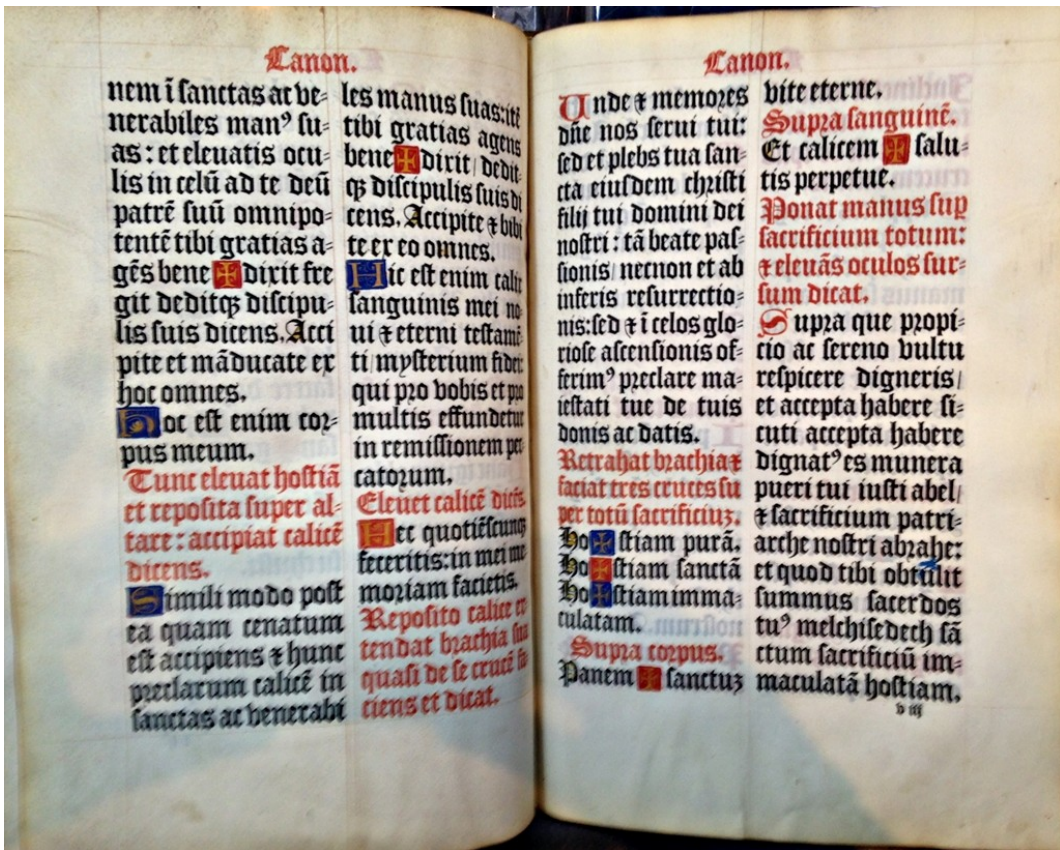 Canon.
nem ī sanctas ac ve⸗
nerabiles manꝰ su⸗
as : et eleuatis ocu⸗
lis in celū ad te deū
patrē suū omnipo⸗
tentē tibi gratias a⸗
gēs bene ✠ dixit fre
git deditqꝫ discipu⸗
lis suis dicens. Acci
pite et māducate ex
hoc omnes.
Hoc est enim cor⸗
pus meum.
Tunc eleuat hostiā
et reposita super al⸗
tare : accipiat calicē
dicens.
Simili modo post
ea quam cenatum
est accipiens ⁊ hunc
preclarum calicē in
sanctas ac venerabi
les manus suas: itē
tibi gratias agens
bene ✠ dixit / dedit⸗
qꝫ discipulis suis di
cens. Accipite ⁊ bibi
te ex eo omnes.
Hic est enim calix
sanguinis mei no⸗
ui ⁊ eterni testamē⸗
ti mysterium fidei:
qui pro vobis et pro
multis effundetur
in remissionem pec⸗
catorum.
Eleuet calicē dicēs.
Hec quotiēscunqꝫ
feceritis: in mei me
moriam facietis.
Reposito calice ex
tendat brachia sua
quasi de se crucē fa
ciens et dicat.
Canon.
Unde ⁊ memores
dn̄e nos serui tui:
sed et plebs tua san⸗
cta eiusdem christi
filij tui domini dei
nostri : tā beate pas⸗
sionis / necnon et ab
inferis resurrectio⸗
nis: sed ⁊ ī celos glo⸗
riose ascensionis of⸗
ferimꝰ preclare ma⸗
iestati tue de tuis
donis ac datis.
Retrahat brachia ⁊
faciat tres cruces su
per totū sacrificiuꝫ.
Ho ✠ stiam purā.
Ho ✠ stiam sanctā
Ho ✠ stiam imma⸗
culatam.
Supra corpus.
Panem ✠ sanctuꝫ
vite eterne.
Supra sanguinē.
Et calicem ✠ salu⸗
tis perpetue.
Ponat manus suꝑ
sacrificium totum:
⁊ eleuās oculos sur⸗
sum dicat.
Supra que propi⸗
cio ac sereno vultu
respicere digneris /
et accepta habere si⸗
cuti accepta habere
dignatꝰ es munera
pueri tui iusti abel /
⁊ sacrificium patri⸗
arche nostri abrahe:
et quod tibi obtulit
summus sacerdos
tuꝰ melchisedech sā
ctum sacrificiū im⸗
maculatā hostiam.
v iij